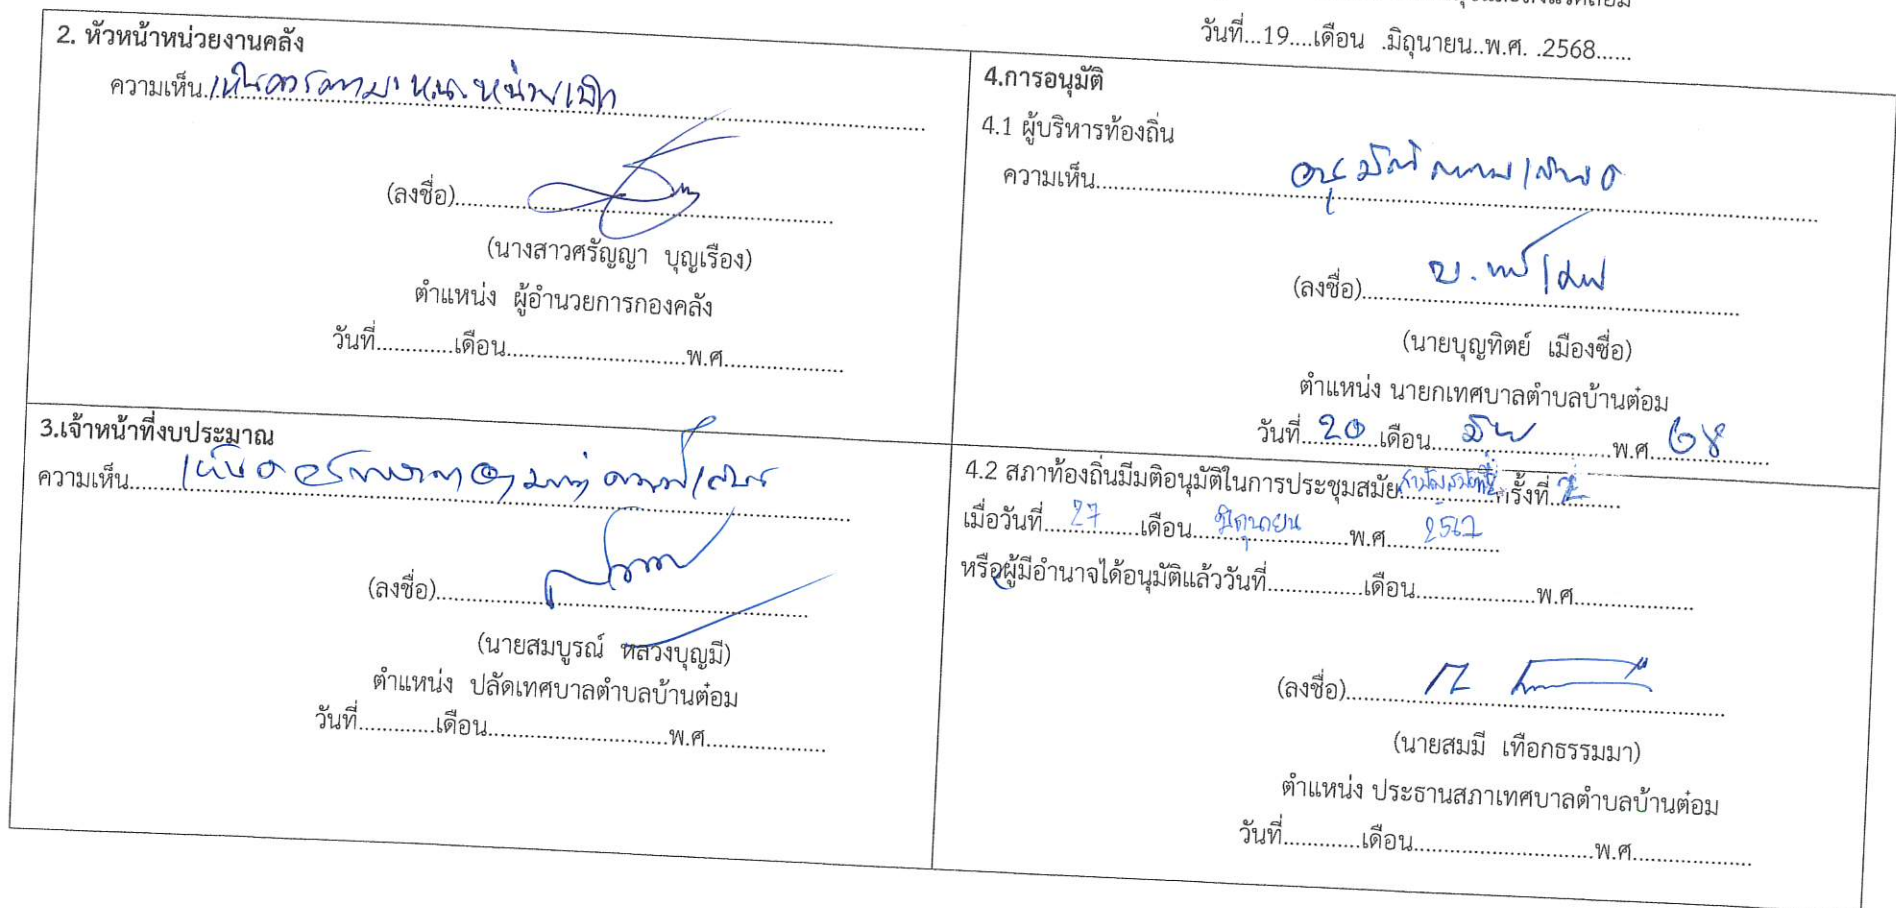 วันที่...19....เดือน .มิถุนายน..พ.ศ. .2568......
2. หัวหน้าหน่วยงานคลัง
ความเห็น
(ลงชื่อ)
(นางสาวศรัญญา บุญเรือง)
ตำแหน่ง ผู้อำนวยการกองคลัง
วันที่.............เดือน..............................พ.ศ....................
3.เจ้าหน้าที่งบประมาณ
ความเห็น
(ลงชื่อ)
(นายสมบูรณ์ หลวงบุญมี)
ตำแหน่ง ปลัดเทศบาลตำบลบ้านต๋อม
วันที่.............เดือน..............................พ.ศ....................
4.การอนุมัติ
4.1 ผู้บริหารท้องถิ่น
ความเห็น อนุมัติตามเสนอ
(ลงชื่อ)
(นายบุญทิตย์ เมืองซื่อ)
ตำแหน่ง นายกเทศบาลตำบลบ้านต๋อม
วันที่ 20 เดือน มิย พ.ศ. 68
4.2 สภาท้องถิ่นมีมติอนุมัติในการประชุมสมัย ครั้งที่ 2
เมื่อวันที่ 27 เดือน มิถุนายน พ.ศ.
หรือผู้มีอำนาจได้อนุมัติแล้ววันที่................เดือน....................พ.ศ....................
(ลงชื่อ)
(นายสมมี เทือกธรรมมา)
ตำแหน่ง ประธานสภาเทศบาลตำบลบ้านต๋อม
วันที่.............เดือน..............................พ.ศ....................